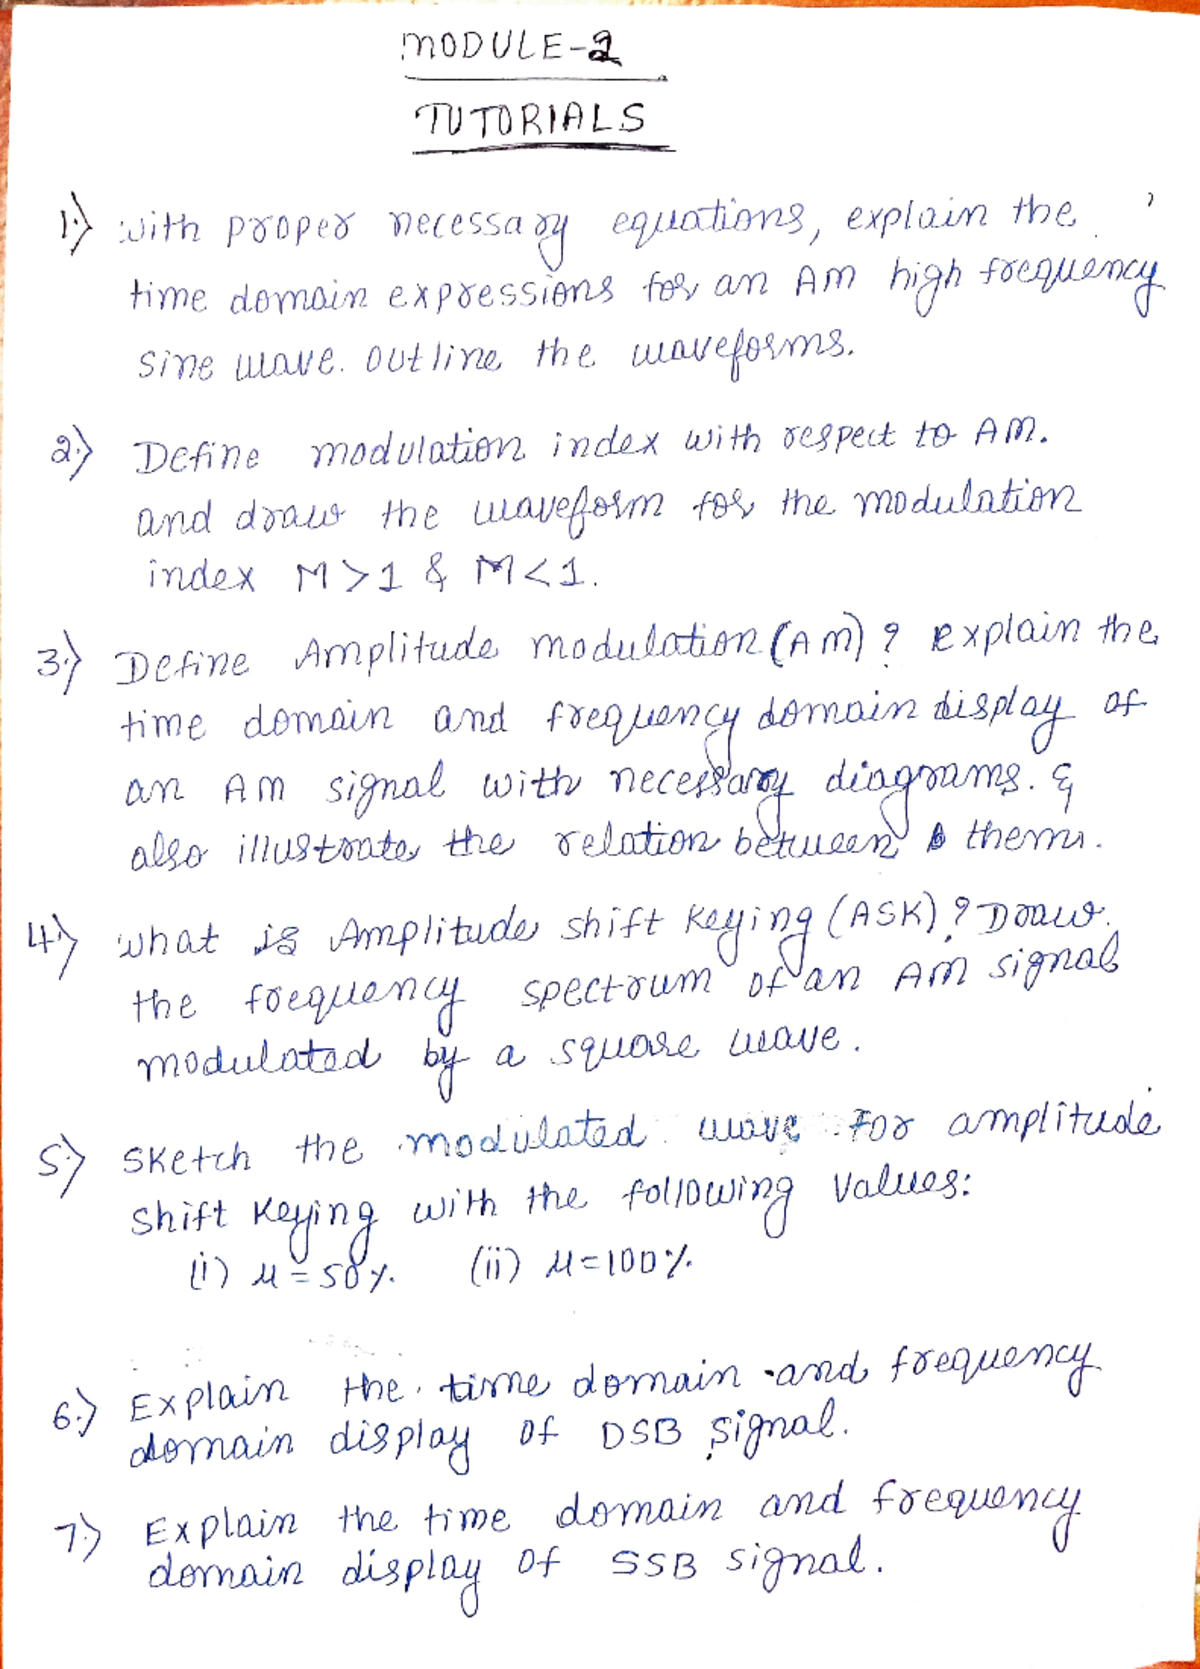 MODULE-2
TUTORIALS
1.) with proper necessary equations, explain the
time domain expressions for an AM high frequency
sine wave. Outline the waveforms.
2.) Define modulation index with respect to AM.
and draw the waveform for the modulation
index M>1 & M<1.
3.) Define Amplitude modulation (AM)? Explain the
time domain and frequency domain display of
an AM signal with necessary diagrams. &
also illustrate the relation between them.
4.) what is Amplitude shift Keying (ASK)? Draw
the frequency spectrum of an AM signal
modulated by a square wave.
5.) Sketch the modulated wave For amplitude
shift Keying with the following values:
(i) μ=50%. (ii) μ=100%.
6.) Explain the time domain and frequency
domain display of DSB signal.
7.) Explain the time domain and frequency
domain display of SSB signal.